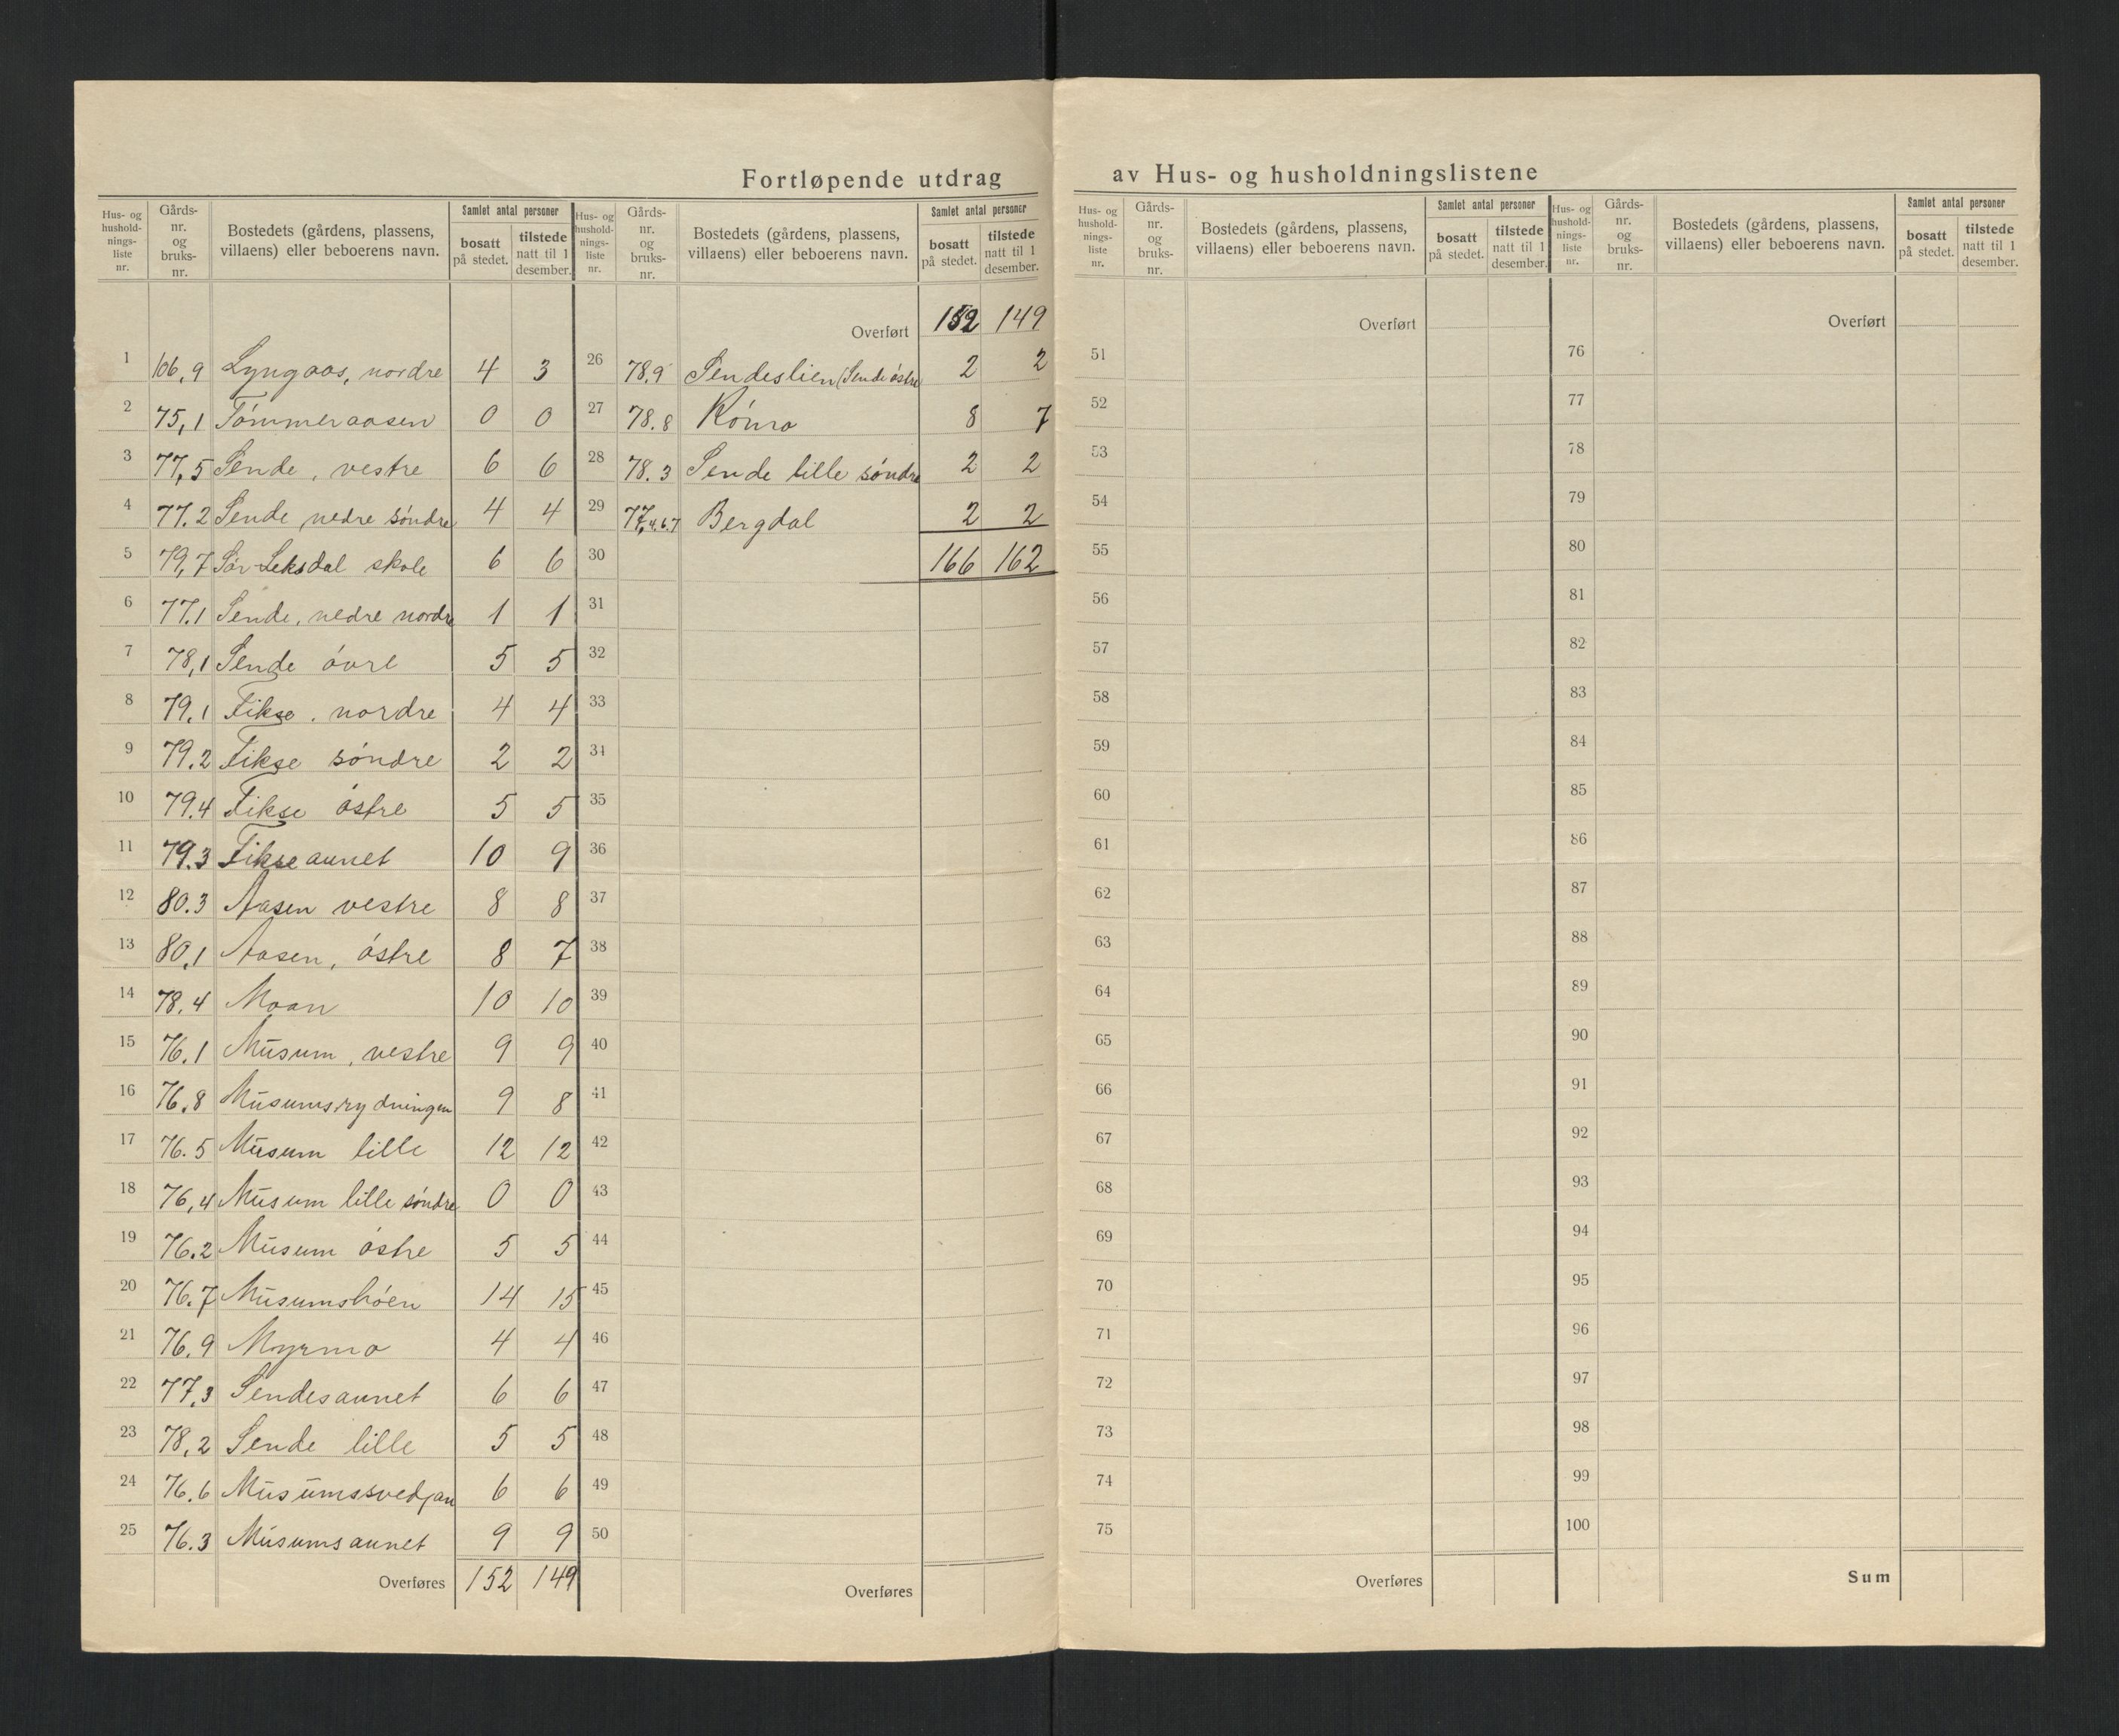 Fortløpende utdrag av Hus- og husholdningslistene
Hus- og hushold-nings-liste nr. | Gårds-nr. og bruks-nr. | Bostedets (gårdens, plassens, villaens) eller beboerens navn. | Samlet antal personer | bosatt på stedet. | tilstede natt til 1 desember.
1 106,9 Lyngaas, nordre 4 3
2 75,1 Tómmeraasen 0 0
3 77,5 Sende, vestre 6 6
4 77.2 Sende nedre söndre 4 4
5 79,7 Sör-Leksdal skole 6 6
6 77.1 Sende, nedre nordre 1 1
7 78,1 Sende óvre 5 5
8 79.1 Fikse, nordre 4 4
9 79.2 Fikse sóndre 2 2
10 79.4 Fikse óstre 5 5
11 79.3 Fikseaunet 10 9
12 80.3 Aasen vestre 8 8
13 80,1 Aasen, óstre 8 7
14 78.4 Moan 10 10
15 76.1 Musum, vestre 9 9
16 76.8 Musumsrydningen 9 8
17 76.5 Musum lille 12 12
18 76,4 Musum lille söndre 0 0
19 76.2 Musum óstre 5 5
20 76.7 Musumshóen 14 15
21 76.9 Myrmo 4 4
22 77.3 Sendesaunet 6 6
23 78,2 Sende lille 5 5
24 76.6 Musumssvedjan 6 6
25 76.3 Musumsaunet 9 9
Overføres 152 149
Hus- og hushold-nings-liste nr. | Gårds-nr. og bruks-nr. | Bostedets (gårdens, plassens, villaens) eller beboerens navn. | Samlet antal personer | bosatt på stedet. | tilstede natt til 1 desember.
Overført 152 149
26 78.9 Sendeslien (Sende óstre 2 2
27 78.8 Rónro 8 7
28 78.3 Sende lille sóndre 2 2
29 77,4.6.7 Bergdal 2 2
30 166 162
31
32
33
34
35
36
37
38
39
40
41
42
43
44
45
46
47
48
49
50
Overføres
Hus- og hushold-nings-liste nr. | Gårds-nr. og bruks-nr. | Bostedets (gårdens, plassens, villaens) eller beboerens navn. | Samlet antal personer | bosatt på stedet. | tilstede natt til 1 desember.
Overført
51
52
53
54
55
56
57
58
59
60
61
62
63
64
65
66
67
68
69
70
71
72
73
74
75
Overføres
Hus- og hushold-nings-liste nr. | Gårds-nr. og bruks-nr. | Bostedets (gårdens, plassens, villaens) eller beboerens navn. | Samlet antal personer | bosatt på stedet. | tilstede natt til 1 desember.
Overført
76
77
78
79
80
81
82
83
84
85
86
87
88
89
90
91
92
93
94
95
96
97
98
99
100
Sum